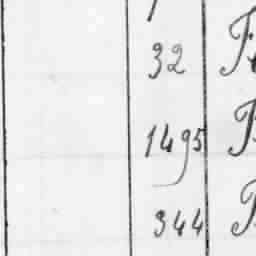 32 F
1495 B
344 B